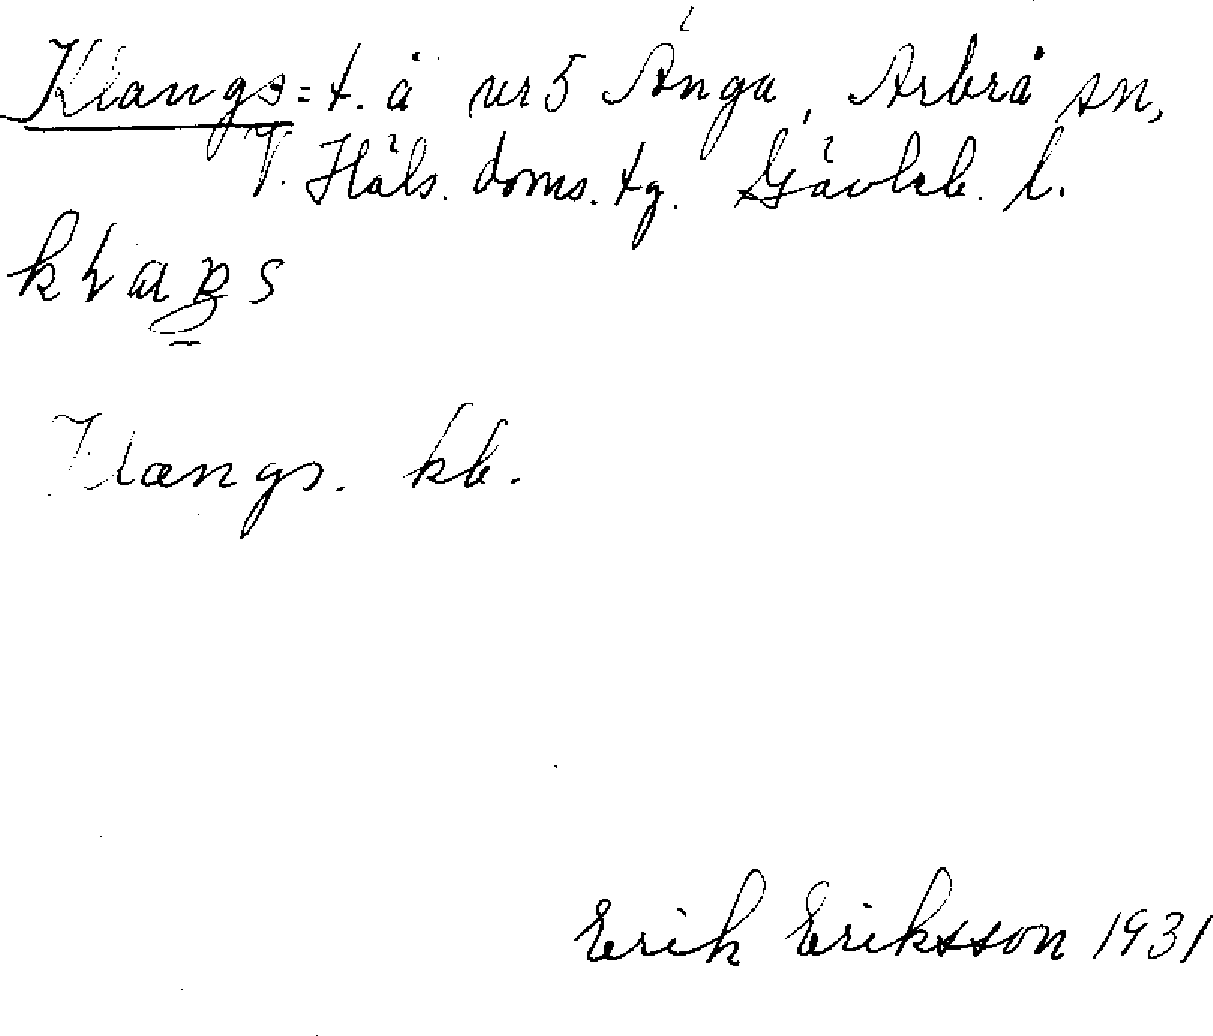 Klangs = t. å nr 5 Änga, Arbrå sn,
V. Häls. doms. tg. Gävleb. l.
Klangs. kb.
Erik Eriksson 1931